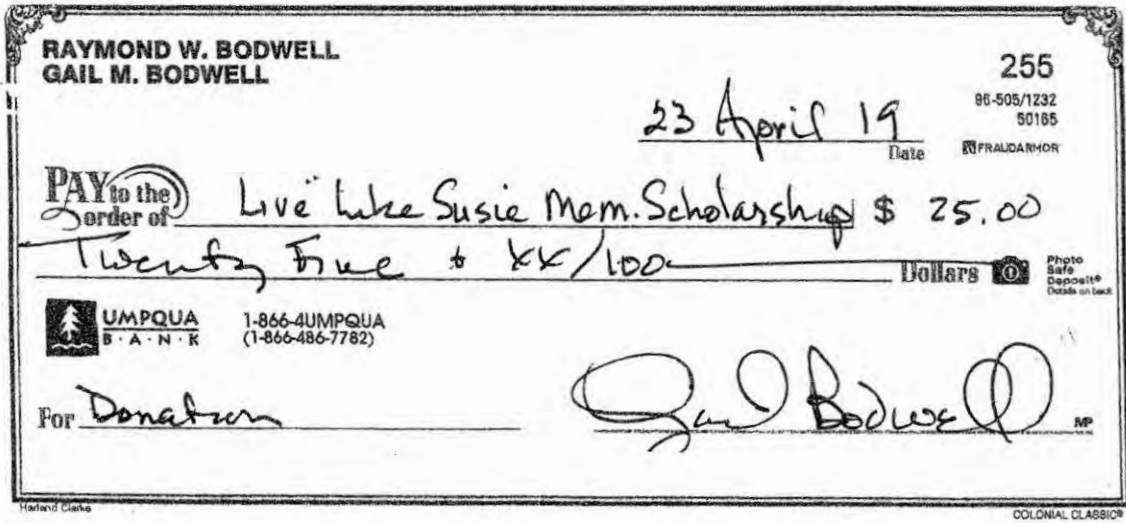 RAYMOND W. BODWELL
GAIL M. BODWELL
255
96-505/1232
50165
23 April 19
Date
FRAUDARMOR
PAY to the order of Live Like Susie Mem. Scholarship $ 25.00
Twenty Five & XX/100 Dollars
Photo Safe Deposit®
Details on back
UMPQUA
B·A·N·K
1-866-4UMPQUA
(1-866-486-7782)
For Donation
Gail Bodwell
MP
Harland Clarke
COLONIAL CLASSIC®